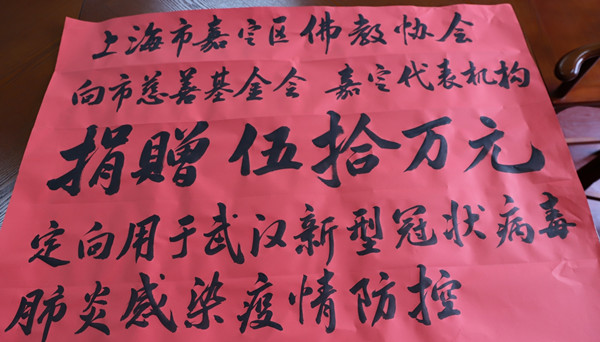 上海市嘉定区佛教协会
向市慈善基金会 嘉定代表机构
捐赠 伍拾万元
定向用于武汉新型冠状病毒
肺炎感染疫情防控